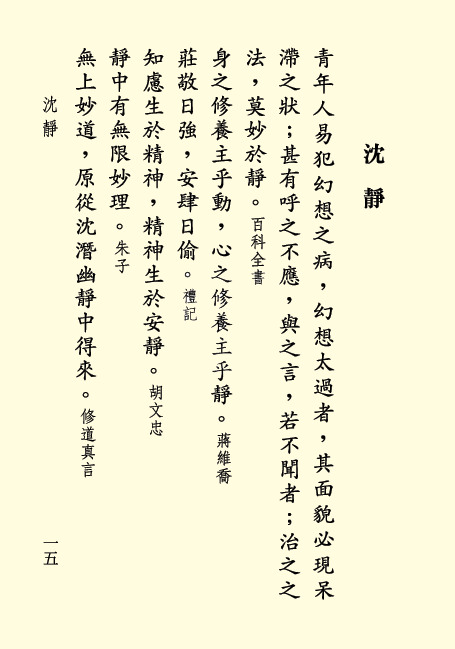 沈靜
青年人易犯幻想之病，幻想太過者，其面貌必現呆
滯之狀；甚有呼之不應，與之言，若不聞者；治之之
法，莫妙於靜。百科全書
身之修養主乎動，心之修養主乎靜。蔣維喬
莊敬日強，安肆日偷。禮記
知慮生於精神，精神生於安靜。胡文忠
靜中有無限妙理。朱子
無上妙道，原從沈潛幽靜中得來。修道真言
沈靜
一五